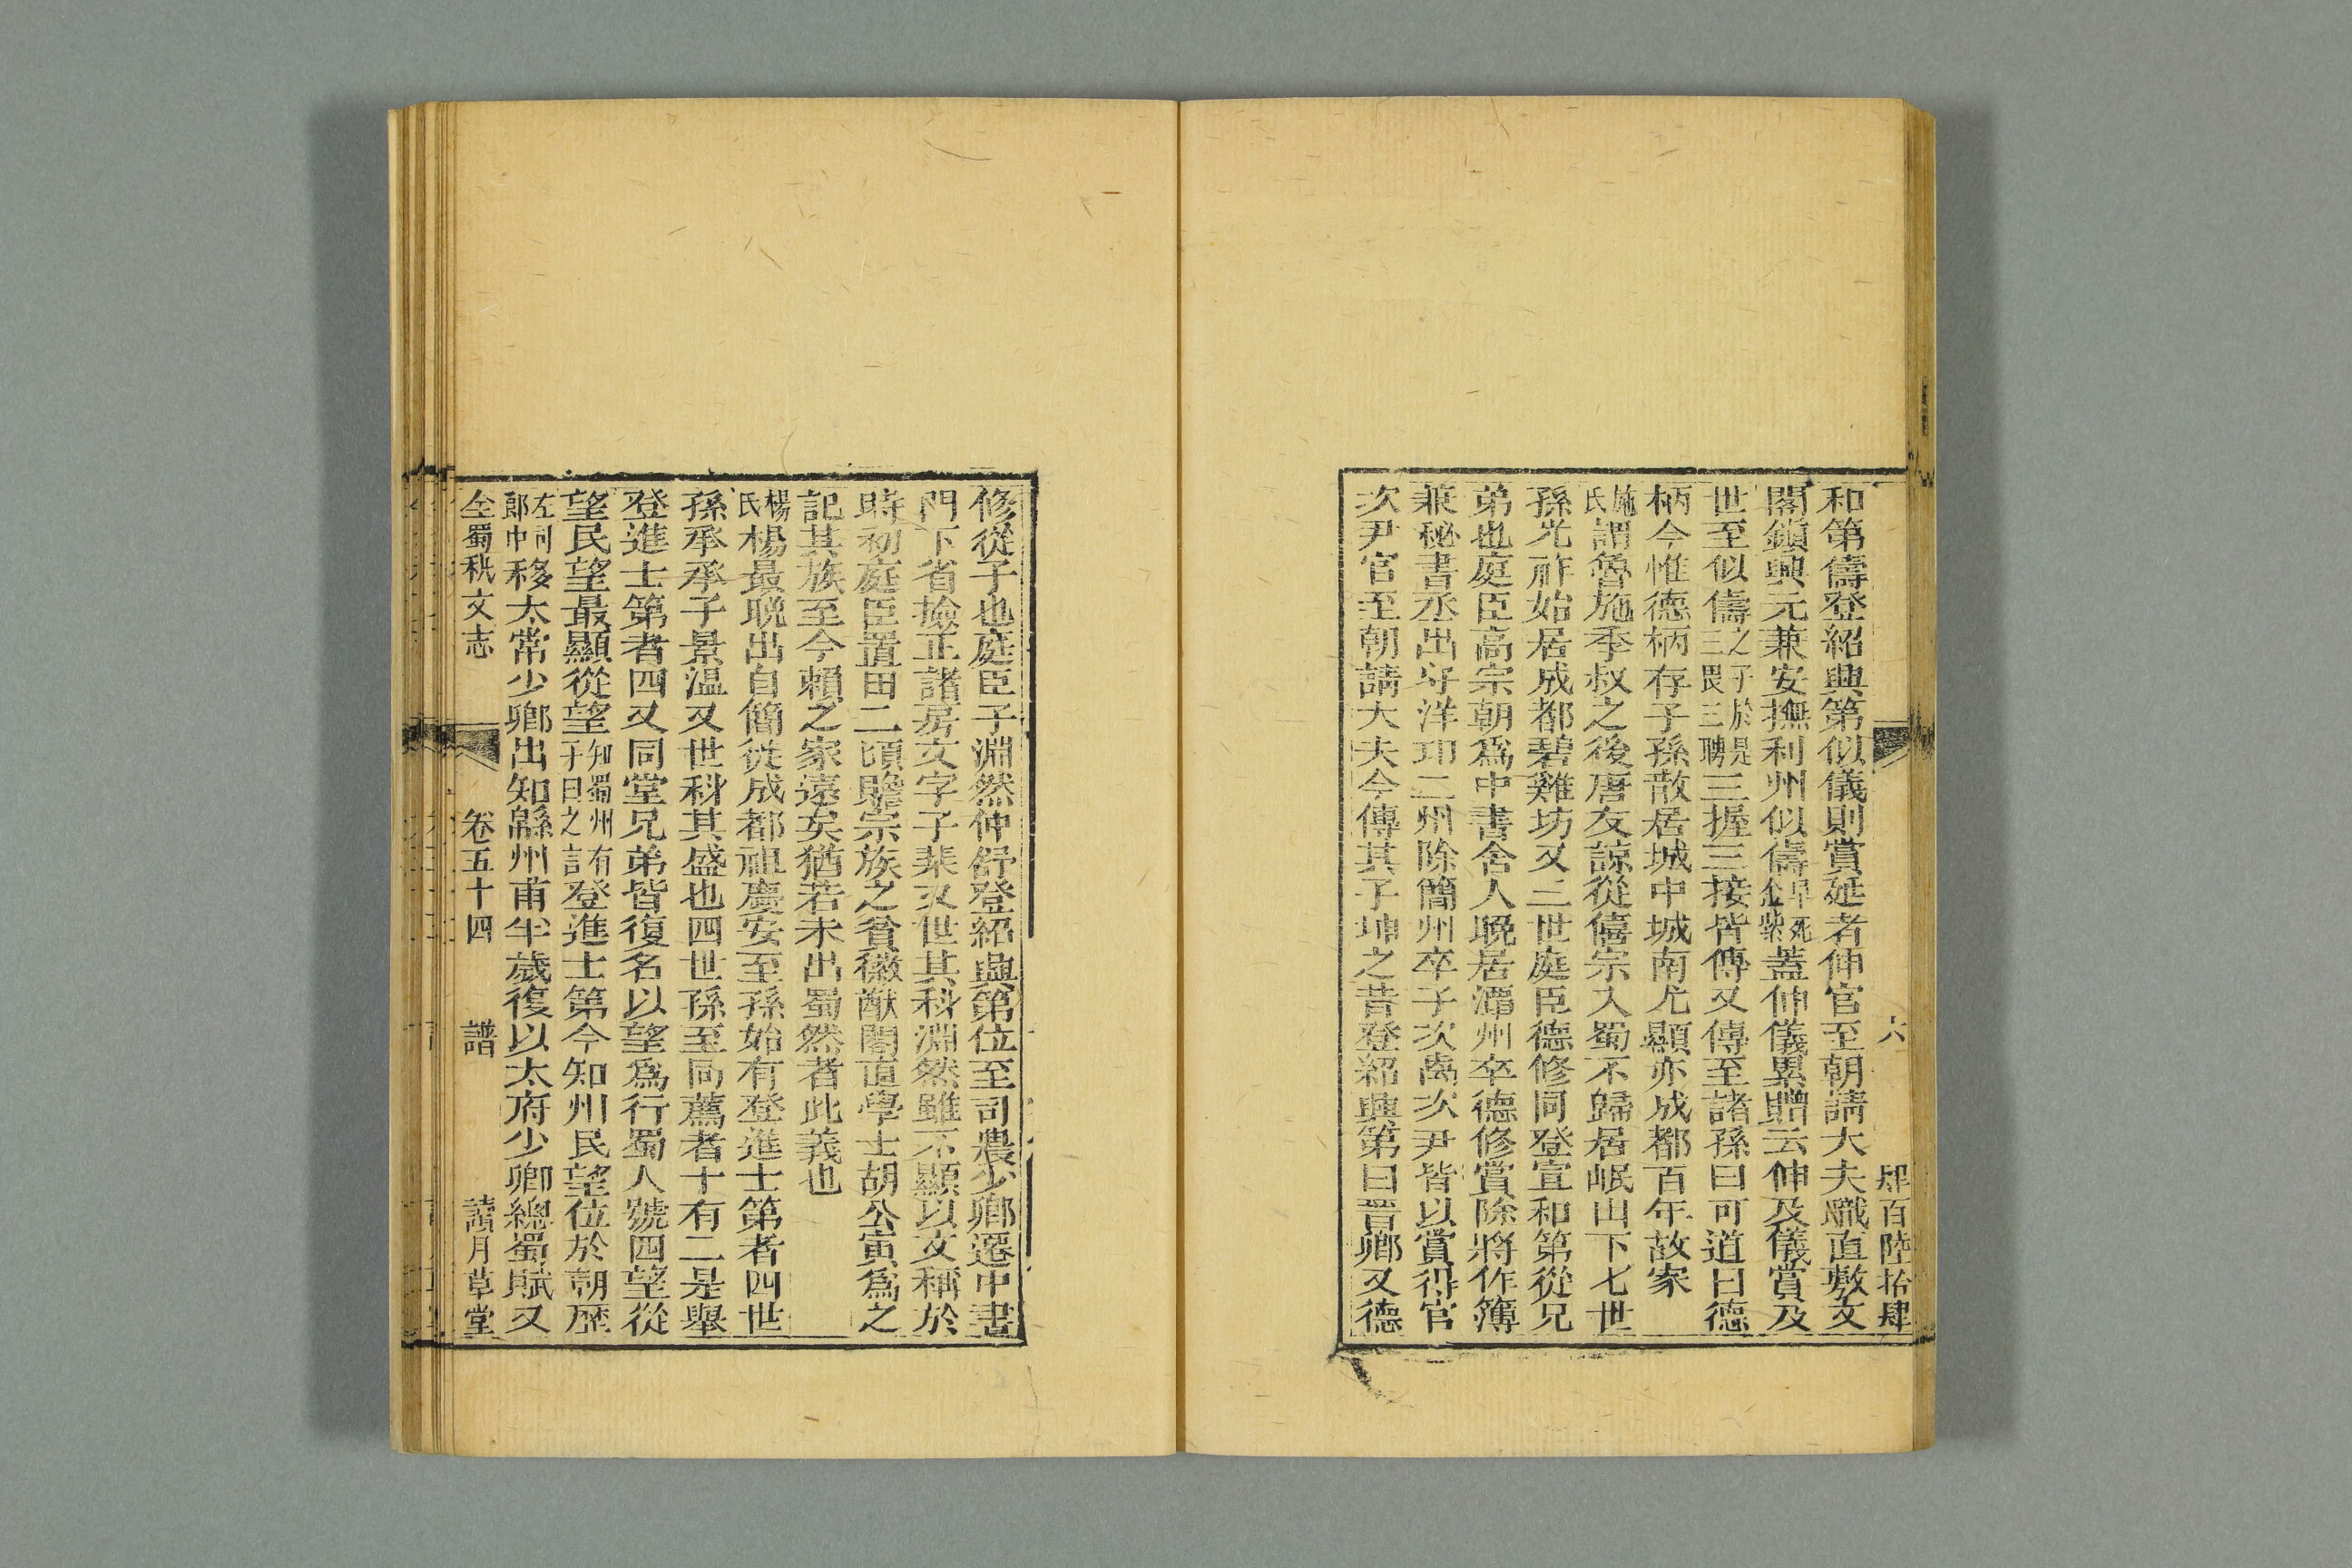 六　肆百陸拾肆
和第儔登紹興第似儀則賞延者伸官至朝請大夫職直敷文
閣鎮興元兼安撫利州似儔早死金紫蓋伸儀累贈云伸及儀賞及
世至似儔之子於是三畏三聘三握三接皆傳又傳至諸孫曰可道曰德
柄今惟德柄存子孫散居城中城南尤顯亦成都百年故家
施氏謂魯施季叔之後唐友諒從僖宗入蜀不歸居岷山下七世
孫光祚始居成都碧雞坊又二世庭臣德修同登宣和第從兄
弟也庭臣高宗朝為中書舍人晚居潭州卒德修賞除將作簿
兼秘書丞出守洋卭二州除簡州卒子次卨次尹皆以賞得官
次尹官至朝請大夫今傳其子坤之昔登紹興第曰晉卿又德
修從子也庭臣子淵然仲舒登紹興第位至司農少卿遷中書
門下省撿正諸房文字子棐又世其科淵然雖不顯以文稱於
時初庭臣置田二頃贍宗族之貧徽猷閣直學士胡公寅為之
記其族至今賴之家遠矣猶若未出蜀然者此義也
楊氏楊最晚出自簡徙成都祖慶安至孫始有登進士第者四世
孫承承子景温又世科其盛也四世孫至同薦者十有二是舉
登進士第者四又同堂兄弟皆復名以望為行蜀人號四望從
望民望最顯從望知蜀州有子曰之訁登進士第今知州民望位於朝歷
左司郎中移太常少卿出知緜州甫半歲復以太府少卿總蜀賦又
全蜀秇文志　卷五十四　譜　讀月草堂